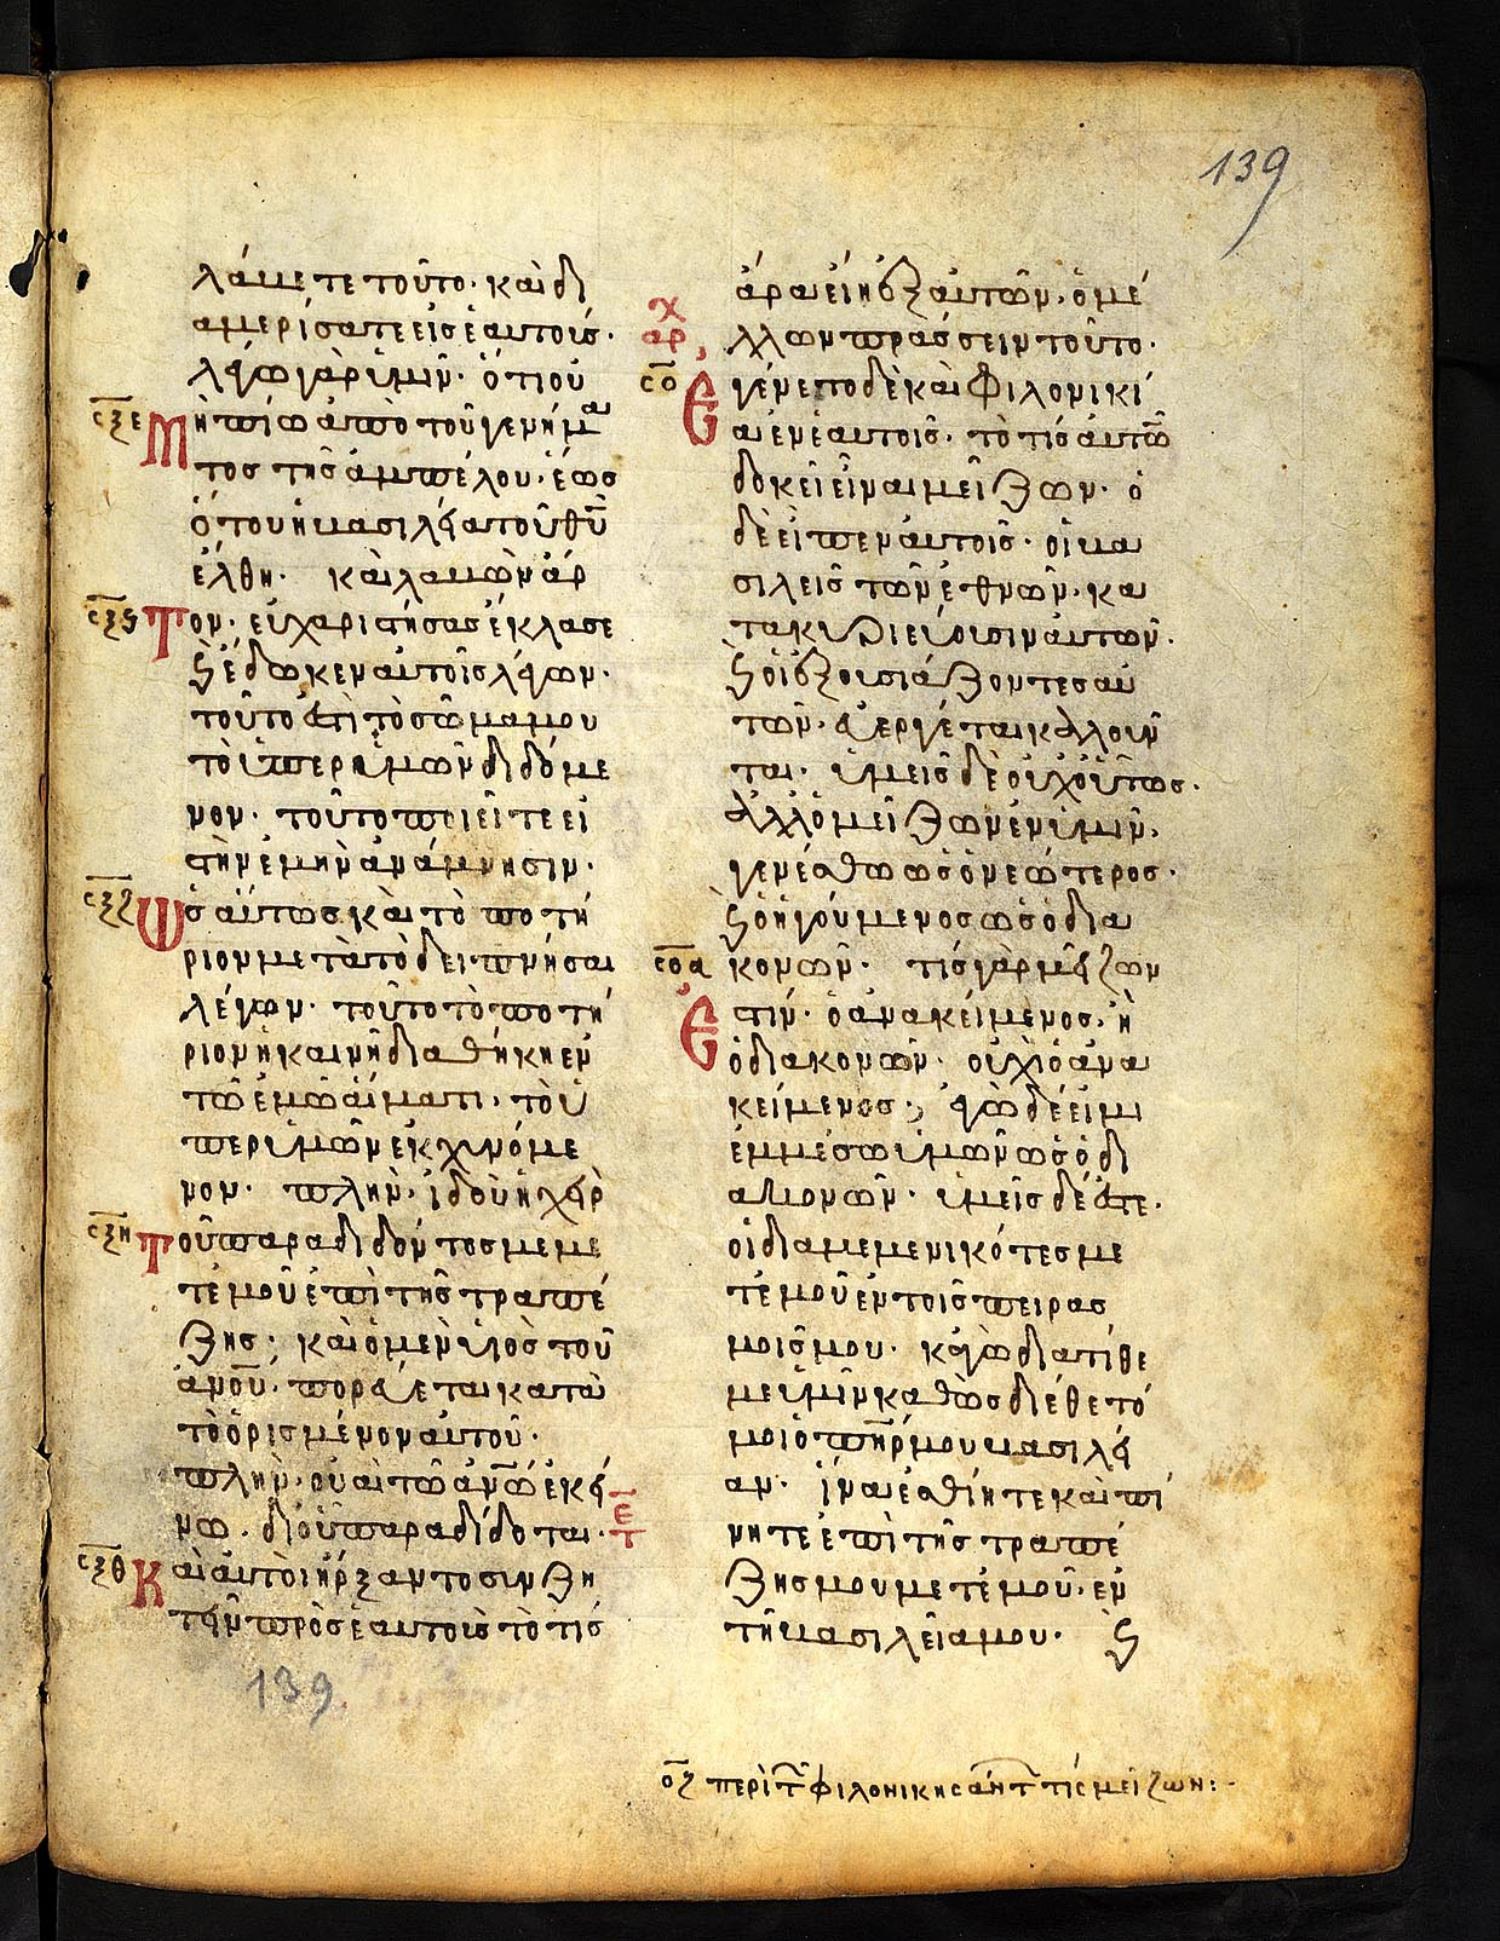 139
λάβετε τοῦτο· καὶ δι
αμερίσατε εἰς ἑαυτοῖς·
λέγω γὰρ ὑμῖν· ὅτι οὐ
σξε Μὴ πίω ἀπὸ τοῦ γενήμα
τος τῆς ἀμπέλου· ἕως
ὅτου ἡ βασιλεία τοῦ θ̅υ̅
ἔλθη· καὶ λαβὼν ἄρ
σξϛ Τον· εὐχαριστήσας ἔκλασε
ϗ ἔδωκεν αὐτοῖς λέγων·
τοῦτό ἐστι τὸ σῶμα μου
τὸ ὑπὲρ ὑμῶν διδόμε
νον· τοῦτο ποιεῖτε εἰ
στὴν ἐμὴν ἀνάμνησιν·
σξζ Ὡσαύτως καὶ τὸ ποτή
ριον μετὰ τὸ δειπνήσαι
λέγων· τοῦτο τὸ ποτή
ριον ἡ καινῆ διαθήκη ἐν
τῶ ἐμῶ αἵματι· τὸ ὑ
περ ὑμῶν ἐκχυνόμε
νον· πλὴν· ἰδοὺ ἡ χεὶρ
σξη Τοῦ παραδιδόντος με με
τ' ἐμοῦ ἐπὶ τῆς τραπέ
ζης· καὶ ὁ μὲν υἱὸς τοῦ
ἀν̅ο̅υ̅· πορεύεται κατὰ
τὸ ὁρισμένον αὐτοῦ·
πλὴν· οὐαὶ τῶ ἀν̅ω̅ ἐκεί
νω· δι' οὗ παραδίδοται·
σξθ Καὶ αὐτοὶ ἤρξαντο συνζη
τεῖν πρὸς ἑαυτοὺς τὸ τίς
139
ἄρα εἴη ἐξ αὐτῶν· ὁ μέ
χ
αρ λλων πράσσειν τοῦτο·
σο Ἐγένετο δὲ καὶ φιλονικί
α ἐν ἑαυτοῖς· τὸ τίς αὐτῶ
δοκεῖ εἶναι μεῖζων· ὁ
δὲ εἶπεν αὐτοῖς· οἱ βα
σιλεῖς τῶν ἐθνῶν· κα
τακυριεύουσιν αὐτῶν·
ϗ οἱ ἐξουσιάζοντες αὐ
τῶν· εὐεργέται καλλοῦν
ται· ὑμεῖς δὲ οὐχ οὕτως·
ἀλλ' ὁ μεῖζων ἐν ὑμῖν·
γενέσθω ὡς ὁ νεώτερος·
ϗ ὁ ἡγούμενος ὡς ὁ δια
σοα κονῶν· τίς γὰρ μείζων
Ἐστίν· ὁ ἀνακείμενος· ἢ
ὁ διακονῶν· οὐχὶ ὁ ἀνα
κείμενος·; ἐγὼ δέ εἰμι
ἐμμέσω ὑμῶν ὡς ὁ δι
ακονῶν· ὑμεῖς δέ ἐστε·
οἱ διαμεμενικότες με
τ' ἐμοῦ ἐν τοῖς πειρας
μοῖς μου· κἀγὼ διατίθε
με ὑμῖν καθὼς διέθετό
μοι ὁ π̅η̅ρ̅ μου βασιλεί
αν· ἵνα ἐσθίητε καὶ πί
νητε ἐπὶ τῆς τραπέ
ζης μου μετ' ἐμοῦ· ἐν
τῆ βασιλεῖα μου· ϗ
ο̅ζ̅ περὶ τ φιλονικησάντ τίς μείζων: